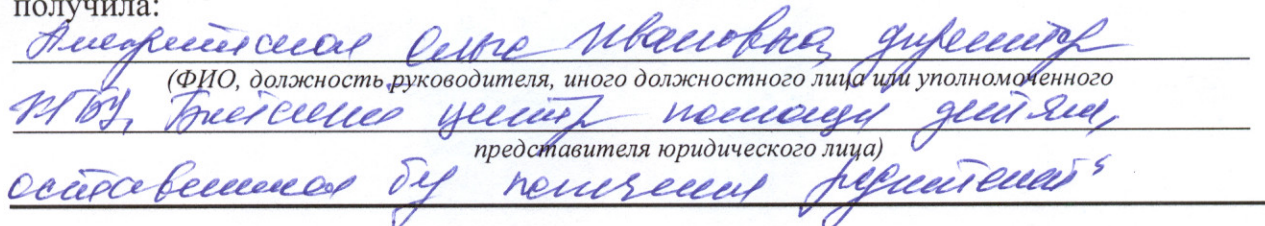 получила:
Ольга Ивановна, директор
(ФИО, должность руководителя, иного должностного лица или уполномоченного
КГБУ, Бийский центр помощи детям,
представителя юридического лица)
оставшимся без попечения родителей"